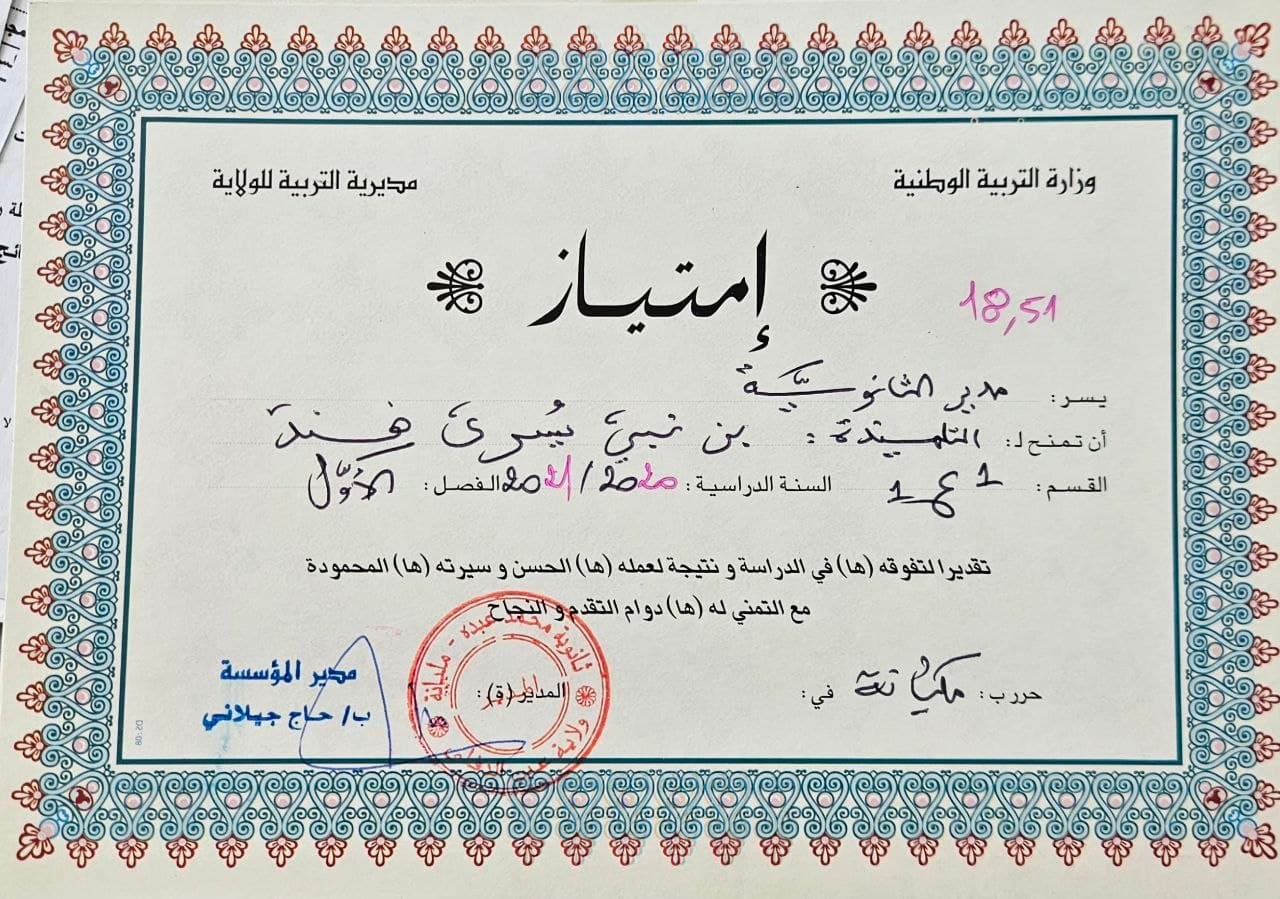 وزارة التربية الوطنية
مديرية التربية للولاية
إمتياز
18,51
يسر: مدير الثانويّة
أن تمنح لـ: التلميذة: بن نبي يُسرى هند
القسم: 1 ع 1 السنة الدراسية: 2020/2021 الفصل: الأوّل
تقديرا لتفوقه (ها) في الدراسة و نتيجة لعمله (ها) الحسن و سيرته (ها) المحمودة
مع التمني له (ها) دوام التقدم و النجاح
حرر ب: مليانة في:
المدير(ة):
مدير المؤسسة
ب/ حاج جيلاني
ثانوية محمد عبده - مليانة
ولاية عين الدفلى
DS:08